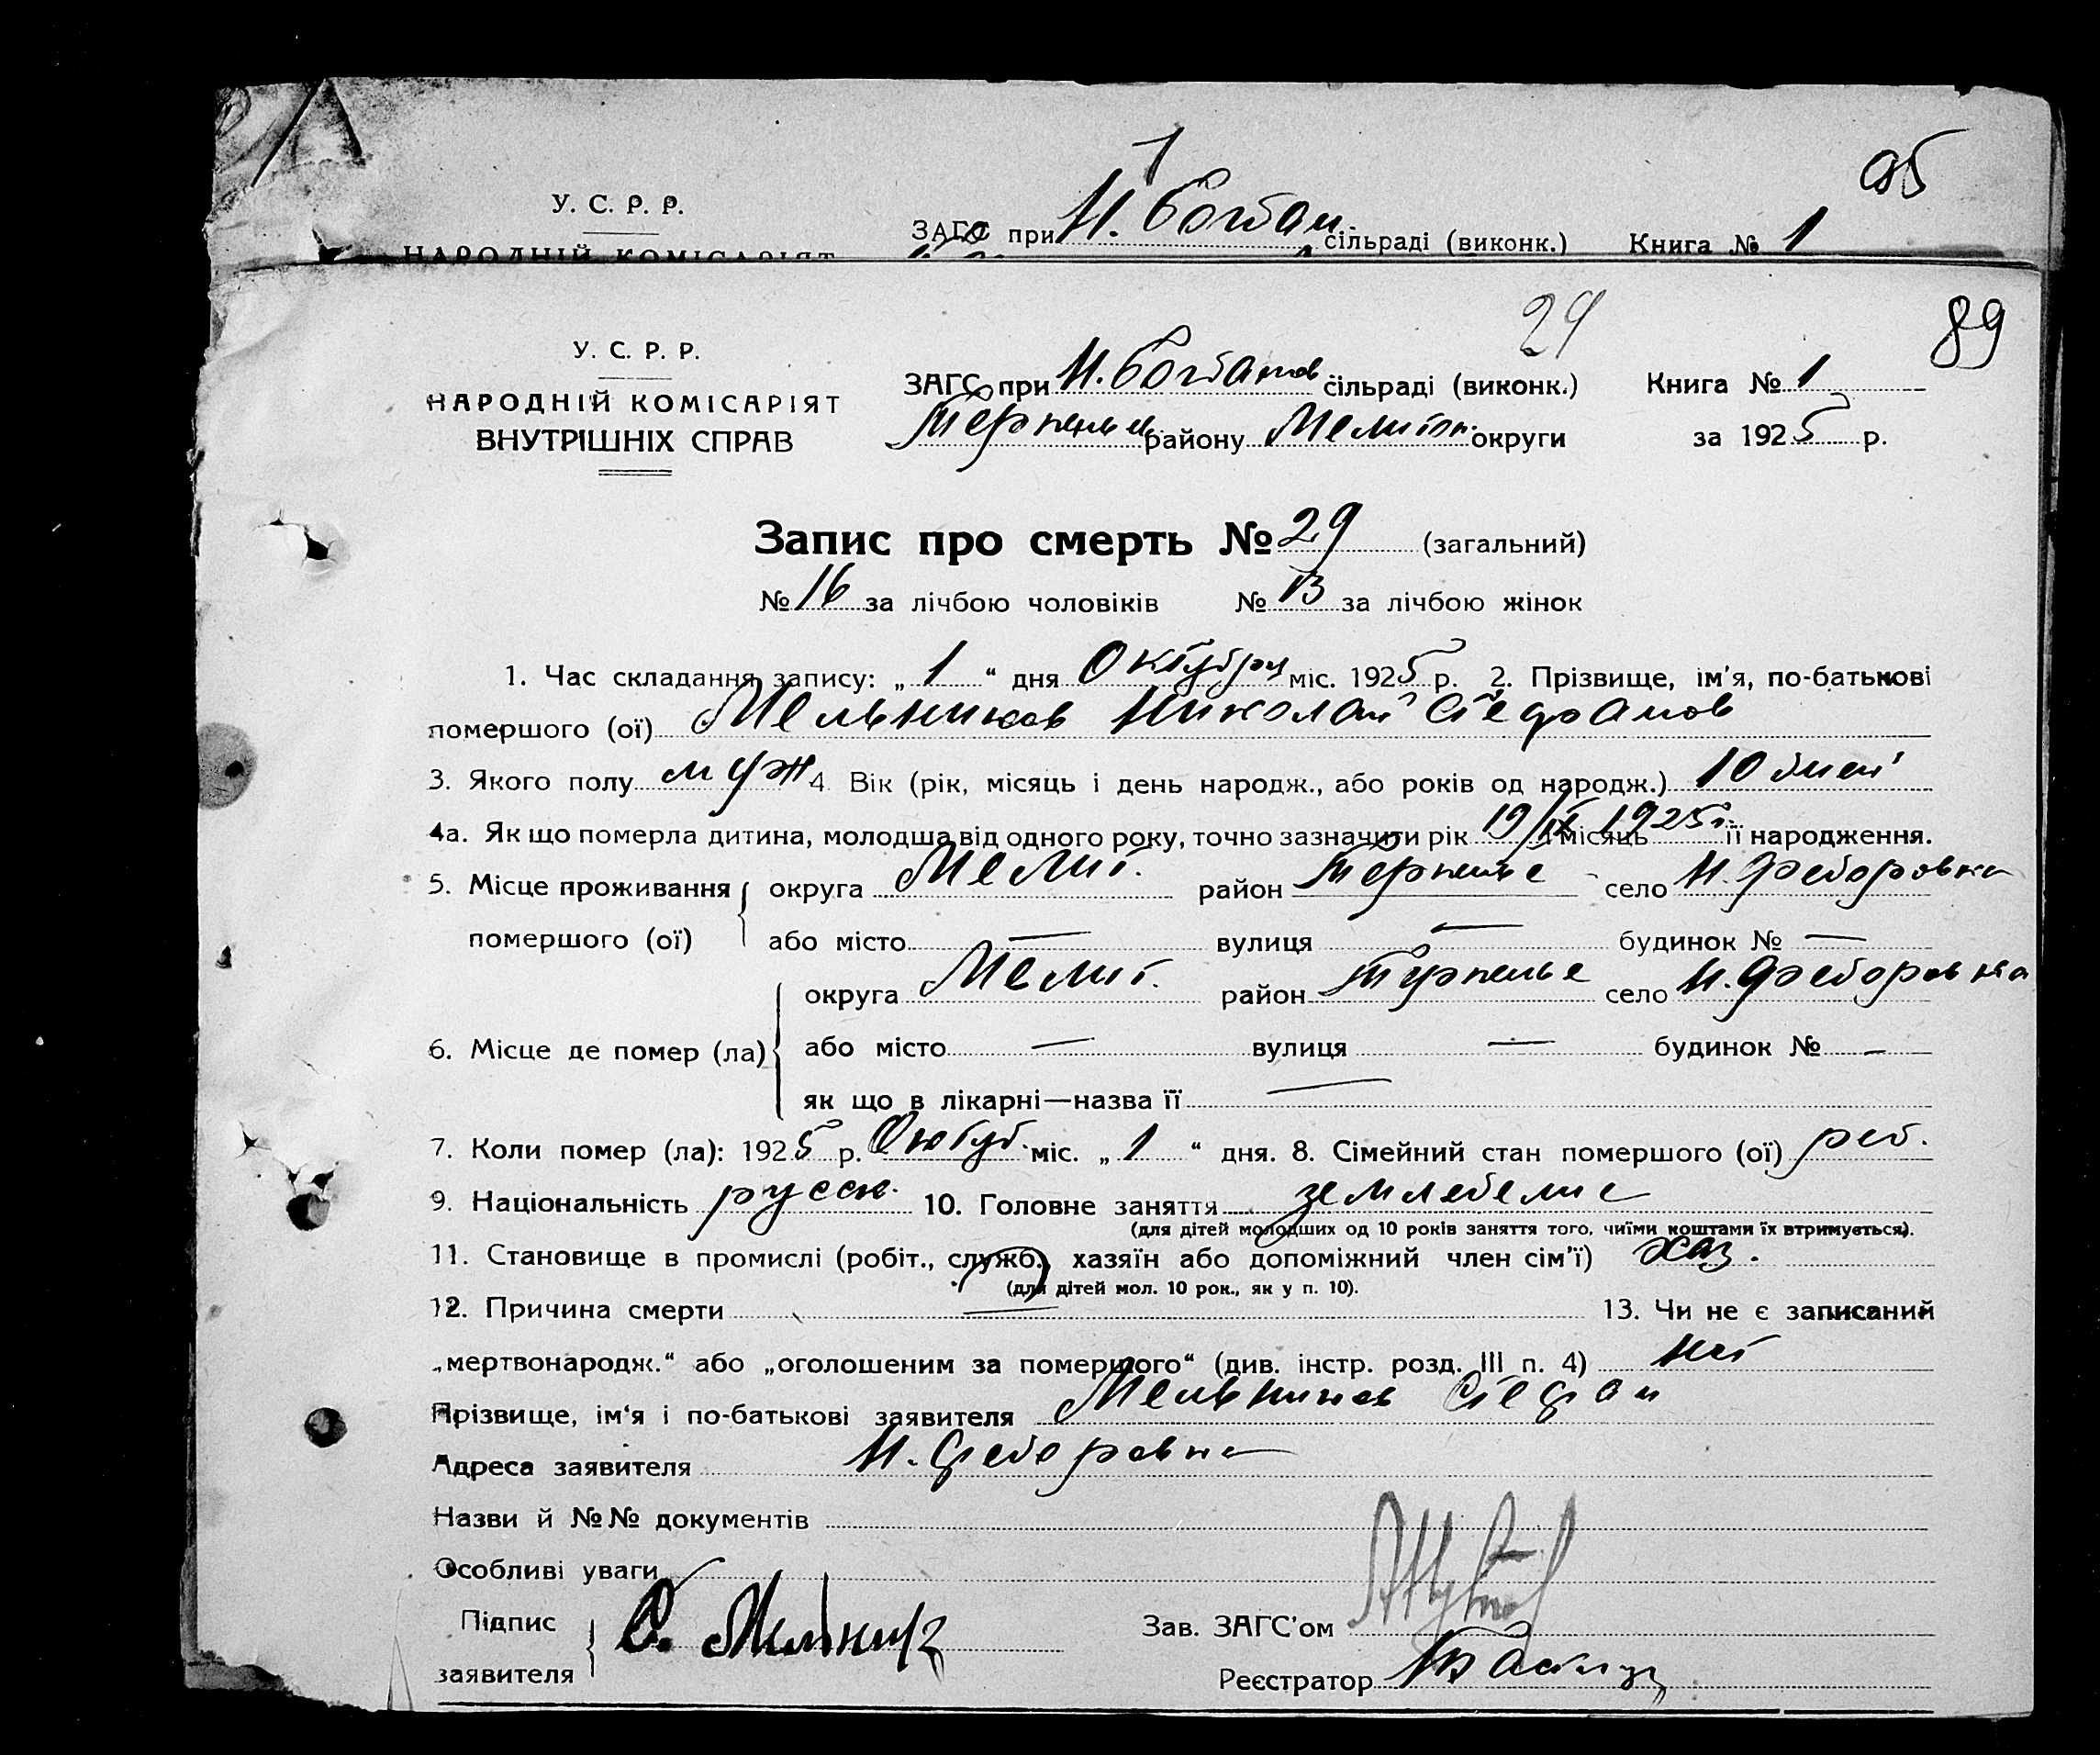 95
У. С. Р. Р.
ЗАГС при Н. Богдан. сільраді (виконк.) Книга № 1
НАРОДНІЙ КОМІСАРІЯТ
29
89
У. С. Р. Р.
ЗАГС при Н. Богданов сільраді (виконк.) Книга № 1
НАРОДНІЙ КОМІСАРІЯТ
ВНУТРІШНІХ СПРАВ
Терпеньев району Мелитоп. округи за 1925 р.
Запис про смерть № 29 (загальний)
№ 16 за лічбою чоловіків № 13 за лічбою жінок
1. Час складання запису: „ 1 “ дня Октября міс. 1925 р. 2. Прізвище, ім'я, по-батькові
помершого (ої) Мельников Николай Стефанов
3. Якого полу муж 4. Вік (рік, місяць і день народж., або років од народж.) 10 дней
4а. Як що померла дитина, молодша від одного року, точно зазначити рік 19/IX місяць 1925 г. її народження.
5. Місце проживання округа Мелит. район Терпенье село Н. Федоровка
помершого (ої) або місто — вулиця — будинок № —
округа Мелит. район Терпенье село Н. Федоровка
6. Місце де помер (ла) або місто — вулиця — будинок № —
як що в лікарні—назва її —
7. Коли помер (ла): 1925 р. Октяб. міс. „ 1 “ дня. 8. Сімейний стан помершого (ої) реб.
9. Національність русск. 10. Головне заняття земледелие
(для дітей молодших од 10 років заняття того, чиїми коштами їх втримується).
11. Становище в промислі (робіт., служб., хазяїн або допоміжний член сім'ї) хаз.
(для дітей мол. 10 рок., як у п. 10).
12. Причина смерти — 13. Чи не є записаний
„мертвонародж.“ або „оголошеним за помершого“ (див. інстр. розд. III п. 4) нет
Прізвище, ім'я і по-батькові заявителя Мельников Стефан
Адреса заявителя Н. Федоровка
Назви й №№ документів
Особливі уваги
Підпис
заявителя С. Мельник
Зав. ЗАГС'ом
Реєстратор